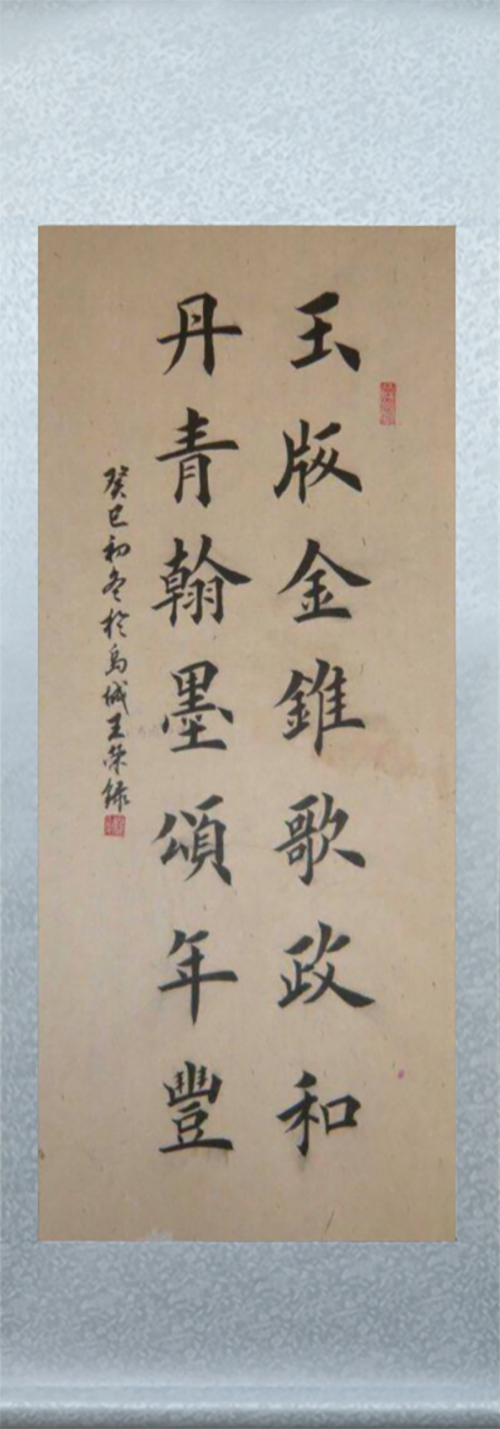 玉版金錐歌政和
丹青翰墨頌年豐
癸巳初冬於烏城王榮錄